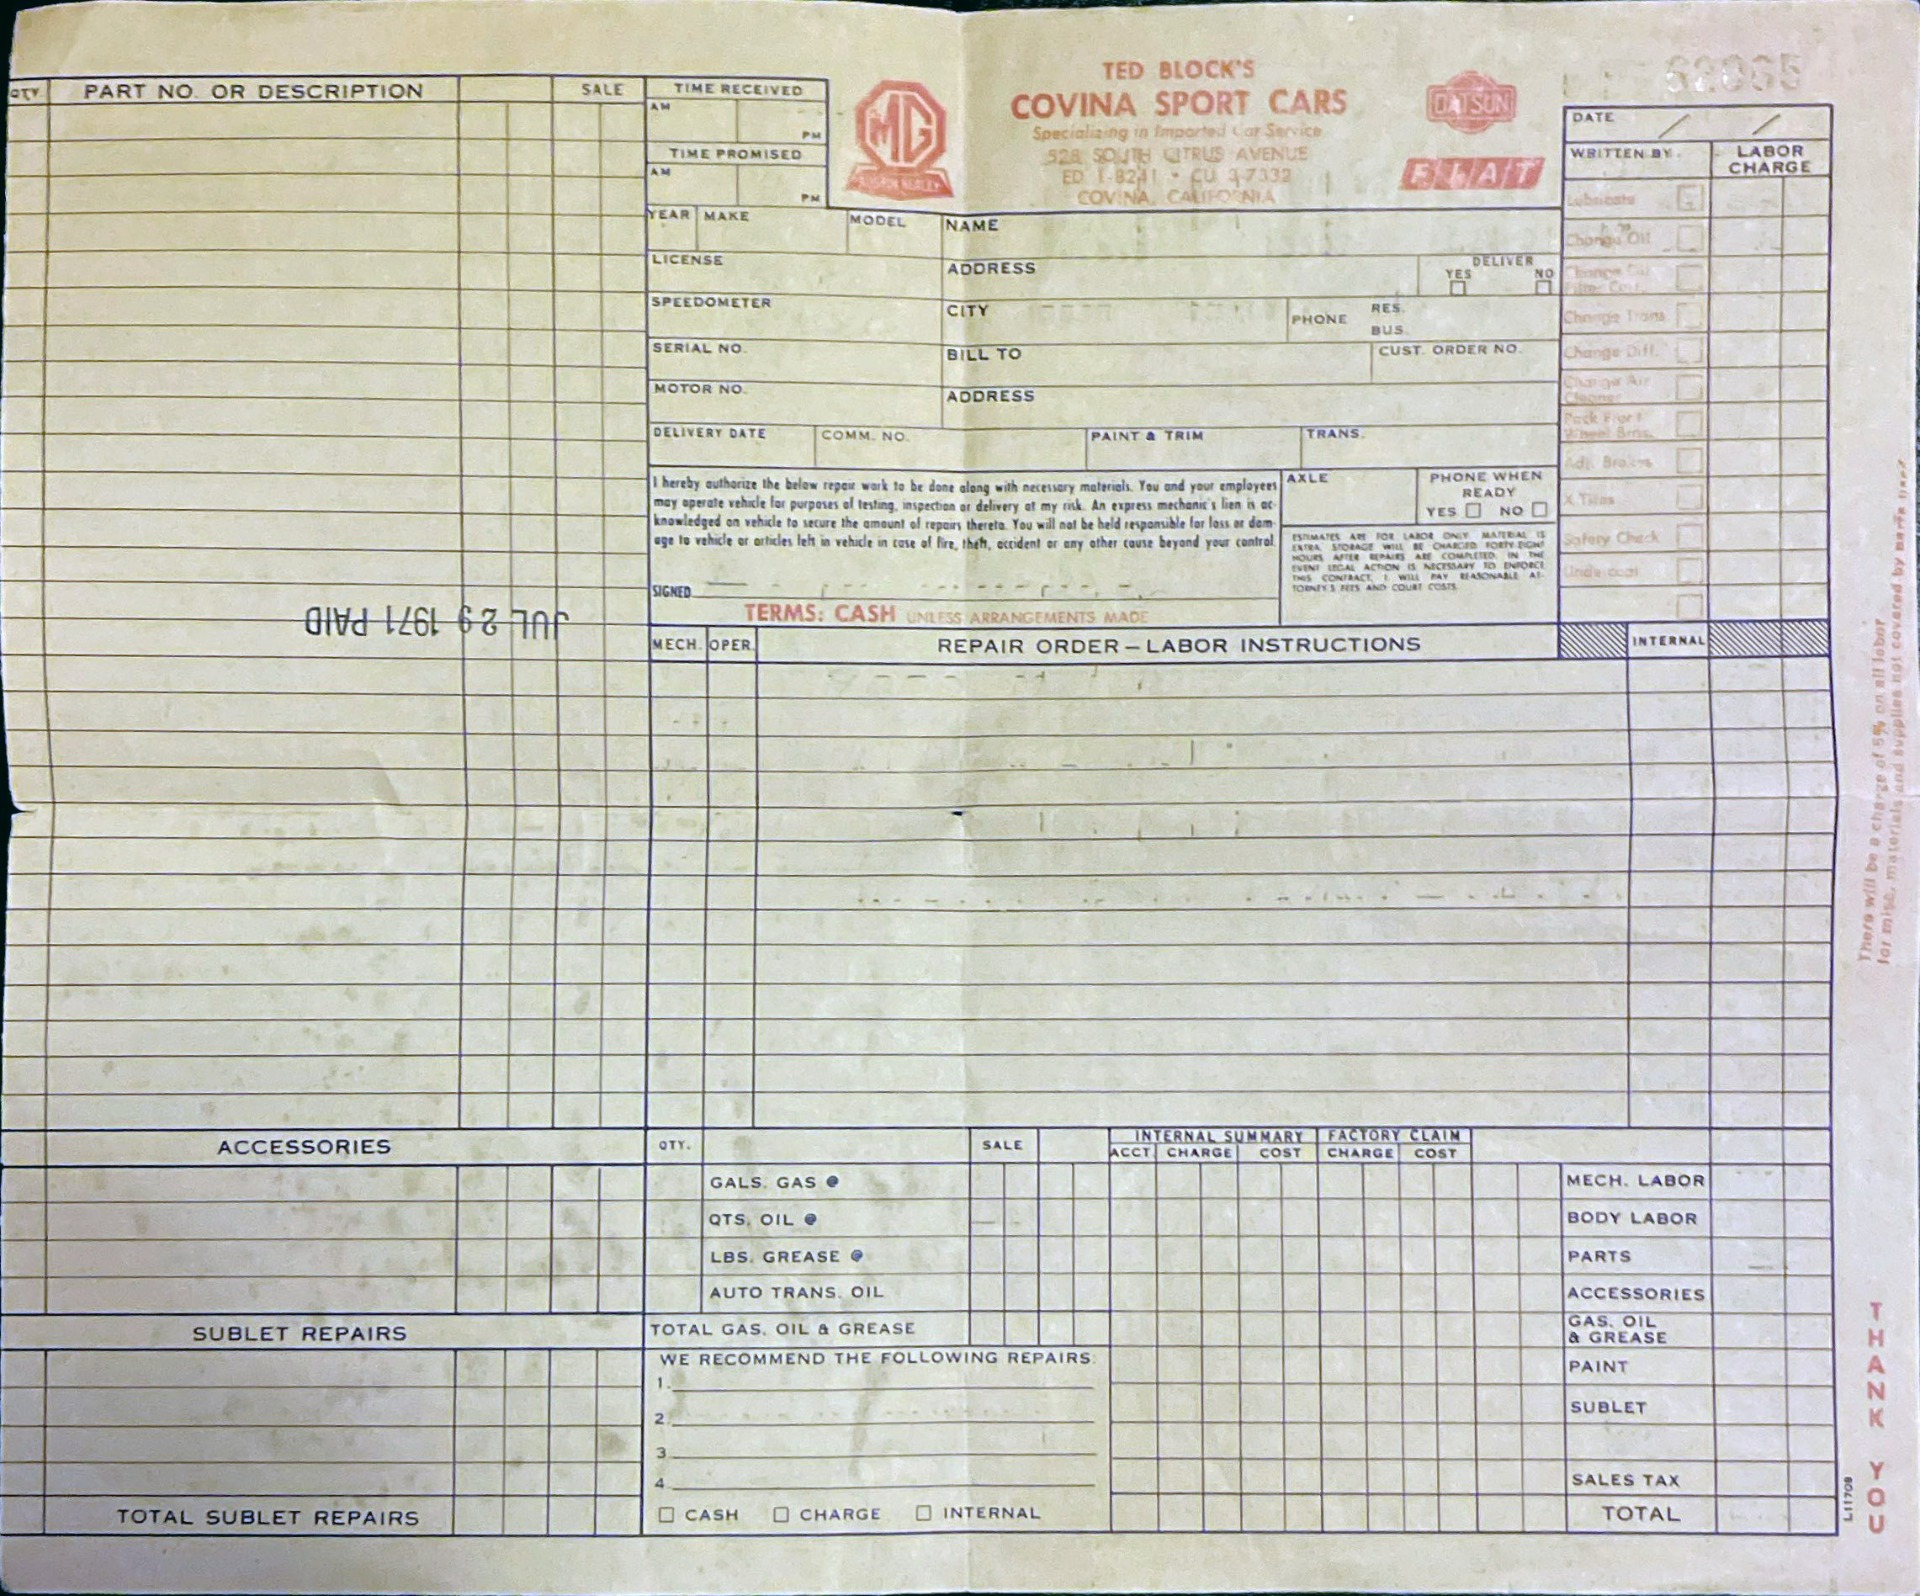 TED BLOCK'S
COVINA SPORT CARS
Specializing in Imported Car Service
528 SOUTH CITRUS AVENUE
ED 1-8241 • CU 3-7332
COVINA, CALIFORNIA
MG
AUSTIN HEALEY
DATSUN
FIAT
QTY.
PART NO. OR DESCRIPTION
SALE
TIME RECEIVED
AM
PM
TIME PROMISED
AM
PM
YEAR
MAKE
MODEL
LICENSE
SPEEDOMETER
SERIAL NO.
MOTOR NO.
DELIVERY DATE
COMM. NO.
PAINT & TRIM
TRANS.
NAME
ADDRESS
DELIVER
YES
NO
CITY
PHONE
RES.
BUS.
BILL TO
CUST. ORDER NO.
ADDRESS
DATE / /
WRITTEN BY
LABOR
CHARGE
Lubricate
Change Oil
Change Oil
Filter Cart.
Change Trans
Change Diff.
Change Air
Cleaner
Pack Front
Wheel Brns.
Adj. Brakes
X Tires
Safety Check
Undercoat
I hereby authorize the below repair work to be done along with necessary materials. You and your employees
may operate vehicle for purposes of testing, inspection or delivery at my risk. An express mechanic's lien is ac-
knowledged on vehicle to secure the amount of repairs thereto. You will not be held responsible for loss or dam-
age to vehicle or articles left in vehicle in case of fire, theft, accident or any other cause beyond your control.
SIGNED
TERMS: CASH UNLESS ARRANGEMENTS MADE
AXLE
PHONE WHEN
READY
YES
NO
ESTIMATES ARE FOR LABOR ONLY, MATERIAL IS
EXTRA. STORAGE WILL BE CHARGED FORTY-EIGHT
HOURS AFTER REPAIRS ARE COMPLETED. IN THE
EVENT LEGAL ACTION IS NECESSARY TO ENFORCE
THIS CONTRACT, I WILL PAY REASONABLE AT-
TORNEY'S FEES AND COURT COSTS.
JUL 29 1971 PAID
MECH.
OPER.
REPAIR ORDER – LABOR INSTRUCTIONS
INTERNAL
ACCESSORIES
QTY.
SALE
GALS. GAS @
QTS. OIL @
LBS. GREASE @
AUTO TRANS. OIL
TOTAL GAS, OIL & GREASE
INTERNAL SUMMARY
ACCT.
CHARGE
COST
FACTORY CLAIM
CHARGE
COST
MECH. LABOR
BODY LABOR
PARTS
ACCESSORIES
GAS, OIL
& GREASE
PAINT
SUBLET
SALES TAX
TOTAL
SUBLET REPAIRS
TOTAL SUBLET REPAIRS
WE RECOMMEND THE FOLLOWING REPAIRS:
1.
2.
3.
4.
CASH
CHARGE
INTERNAL
There will be a charge of 5% on all labor
for misc. materials and supplies not covered by
L11709
THANK YOU